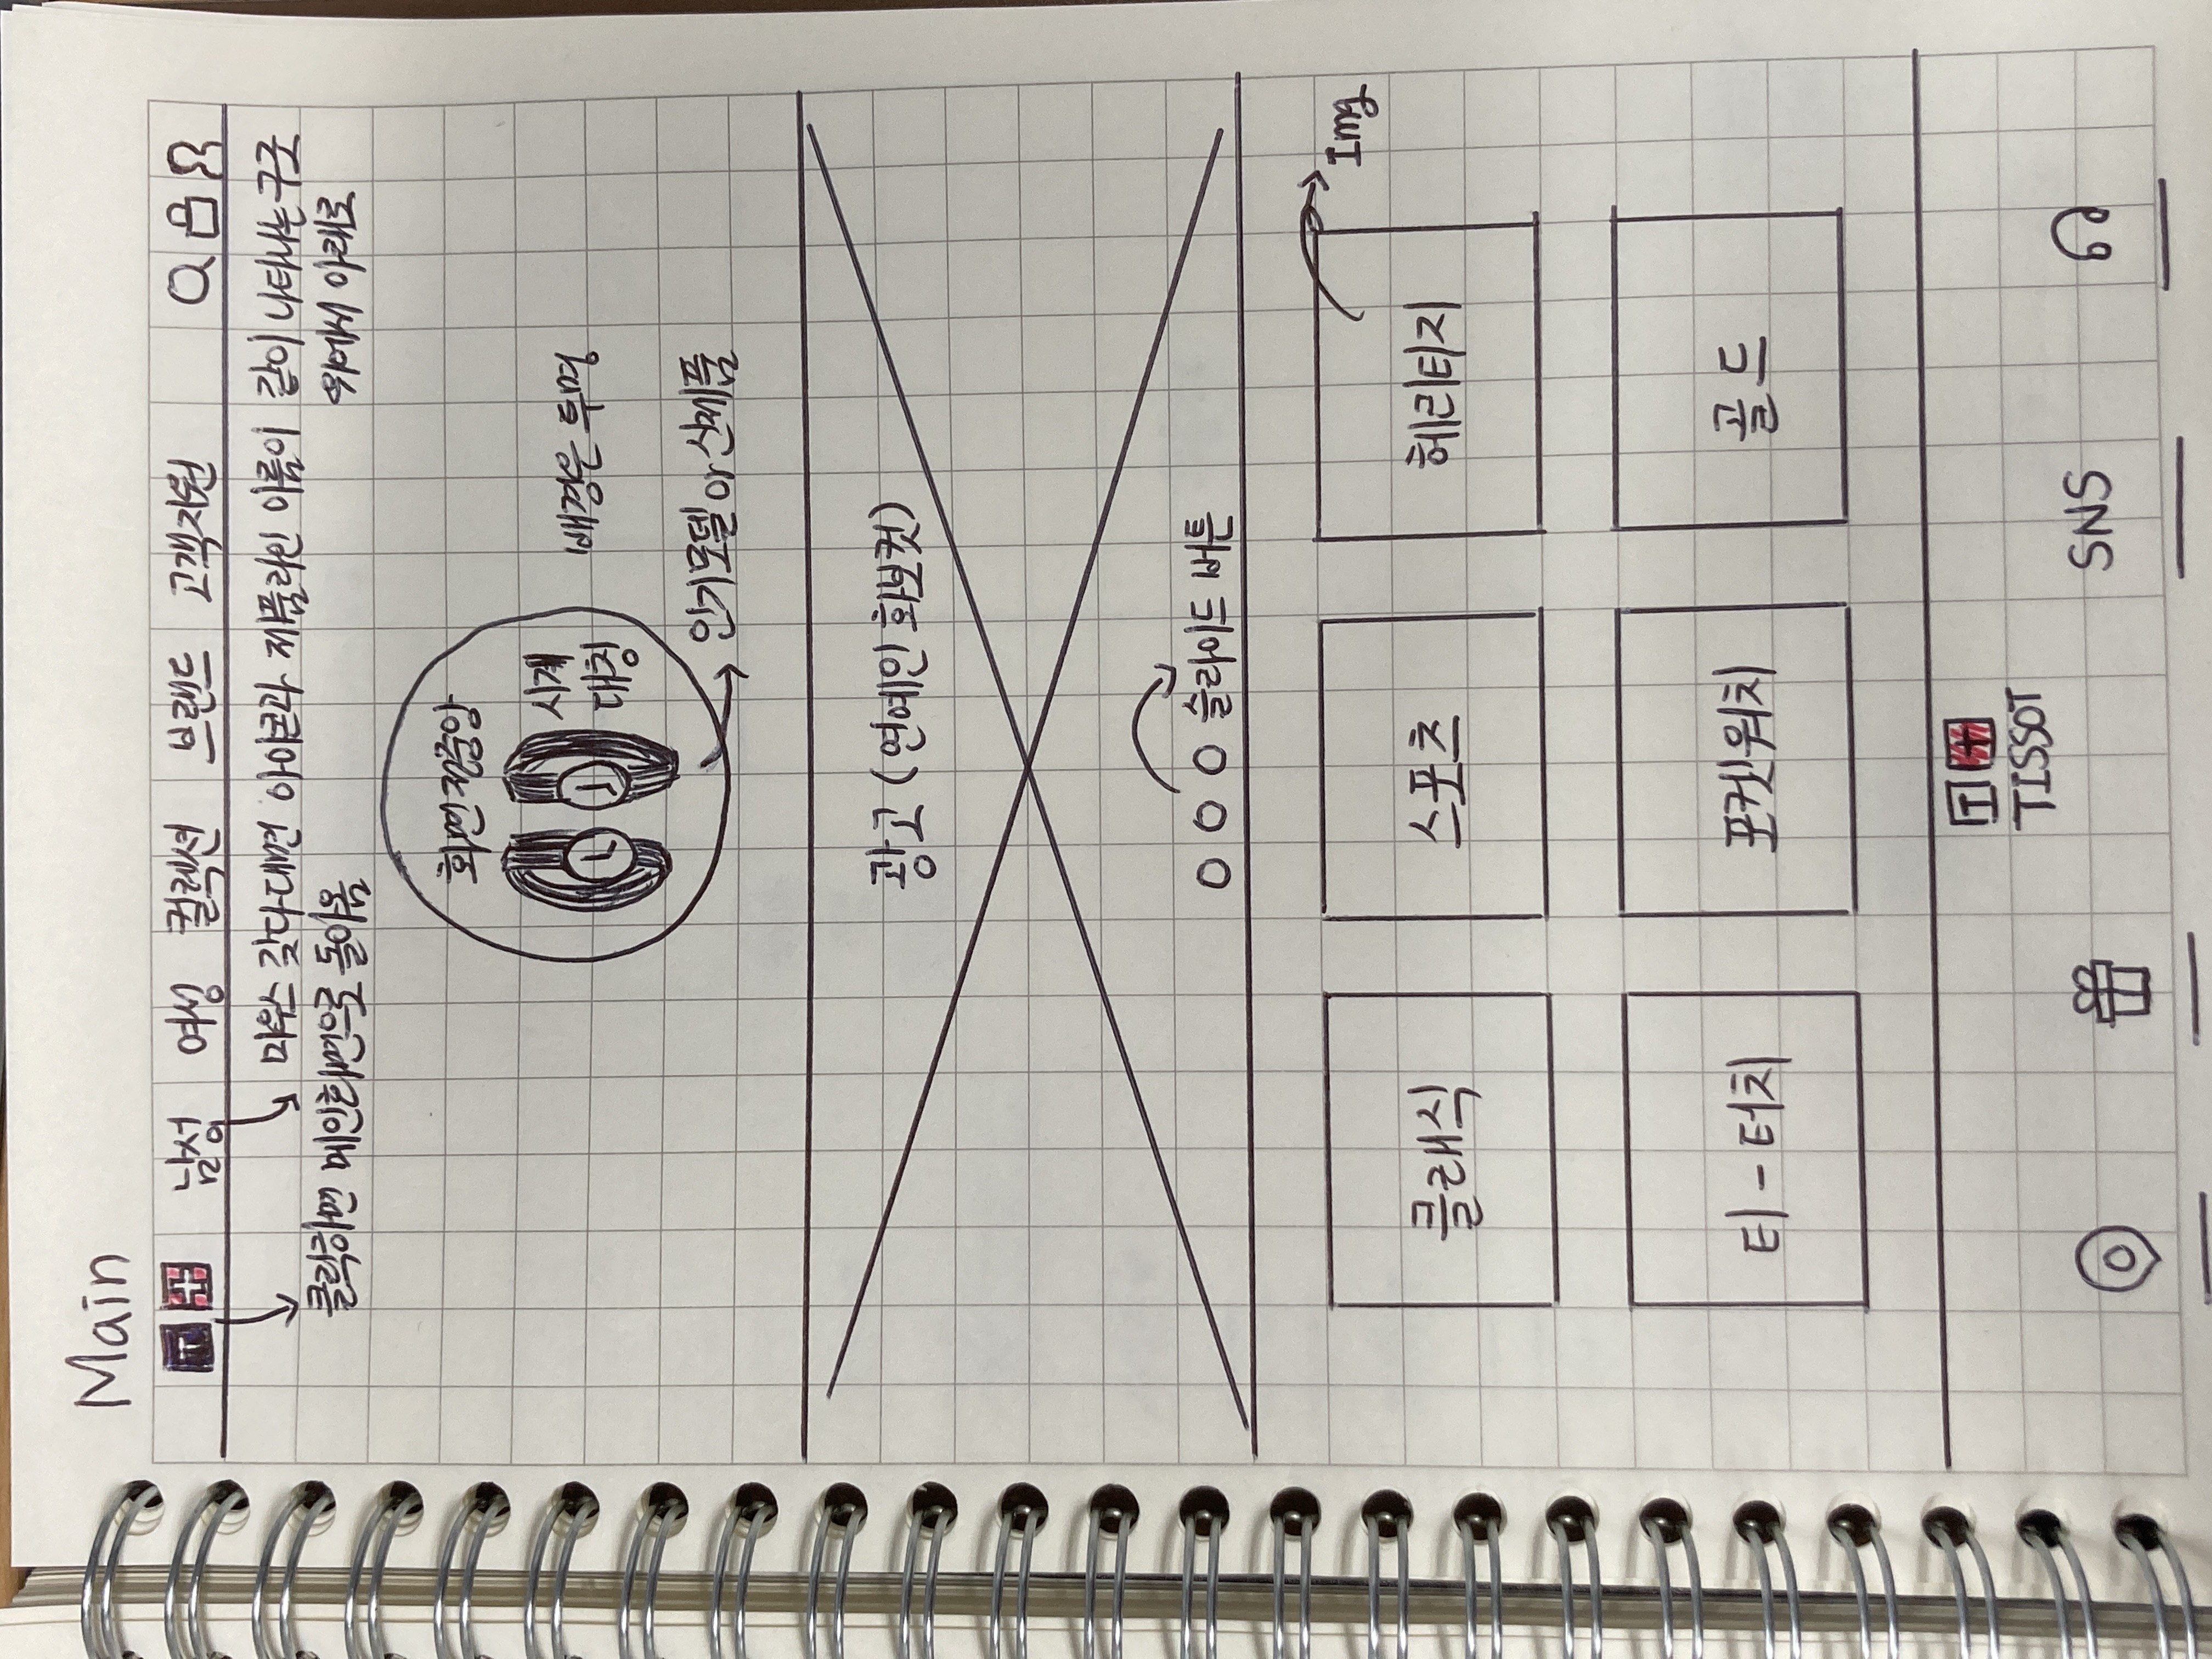 Main
T 남성 여성 컬렉션 브랜드 고객지원
마우스 갖다대면 아이콘과 제품라인 이름이 같이 나타나는 구조
클릭하면 메인화면으로 돌아옴 위에서 아래로
화면 정중앙
시계
대칭
배경은 투명
인기모델 or 신제품
광고 (연예인 화보컷)
슬라이드 버튼
Img
클래식 스포츠 헤리티지
티-터치 포켓워치 골드
T
TISSOT
SNS